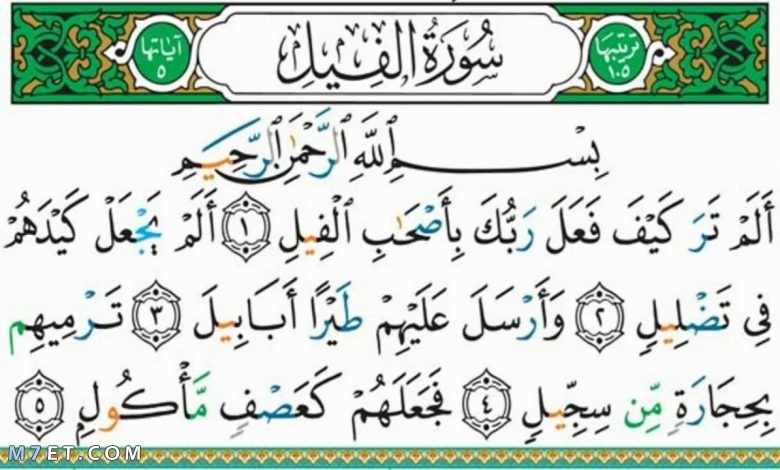 تَرتيبُهَا ١٠٥ سُورَةُ الفِيلِ آيَاتُها ٥
بِسْمِ ٱللَّهِ ٱلرَّحْمَٰنِ ٱلرَّحِيمِ
أَلَمْ تَرَ كَيْفَ فَعَلَ رَبُّكَ بِأَصْحَٰبِ ٱلْفِيلِ ١ أَلَمْ يَجْعَلْ كَيْدَهُمْ
فِى تَضْلِيلٍ ٢ وَأَرْسَلَ عَلَيْهِمْ طَيْرًا أَبَابِيلَ ٣ تَرْمِيهِم
بِحِجَارَةٍ مِّن سِجِّيلٍ ٤ فَجَعَلَهُمْ كَعَصْفٍ مَّأْكُولٍۭ ٥
M7ET.COM